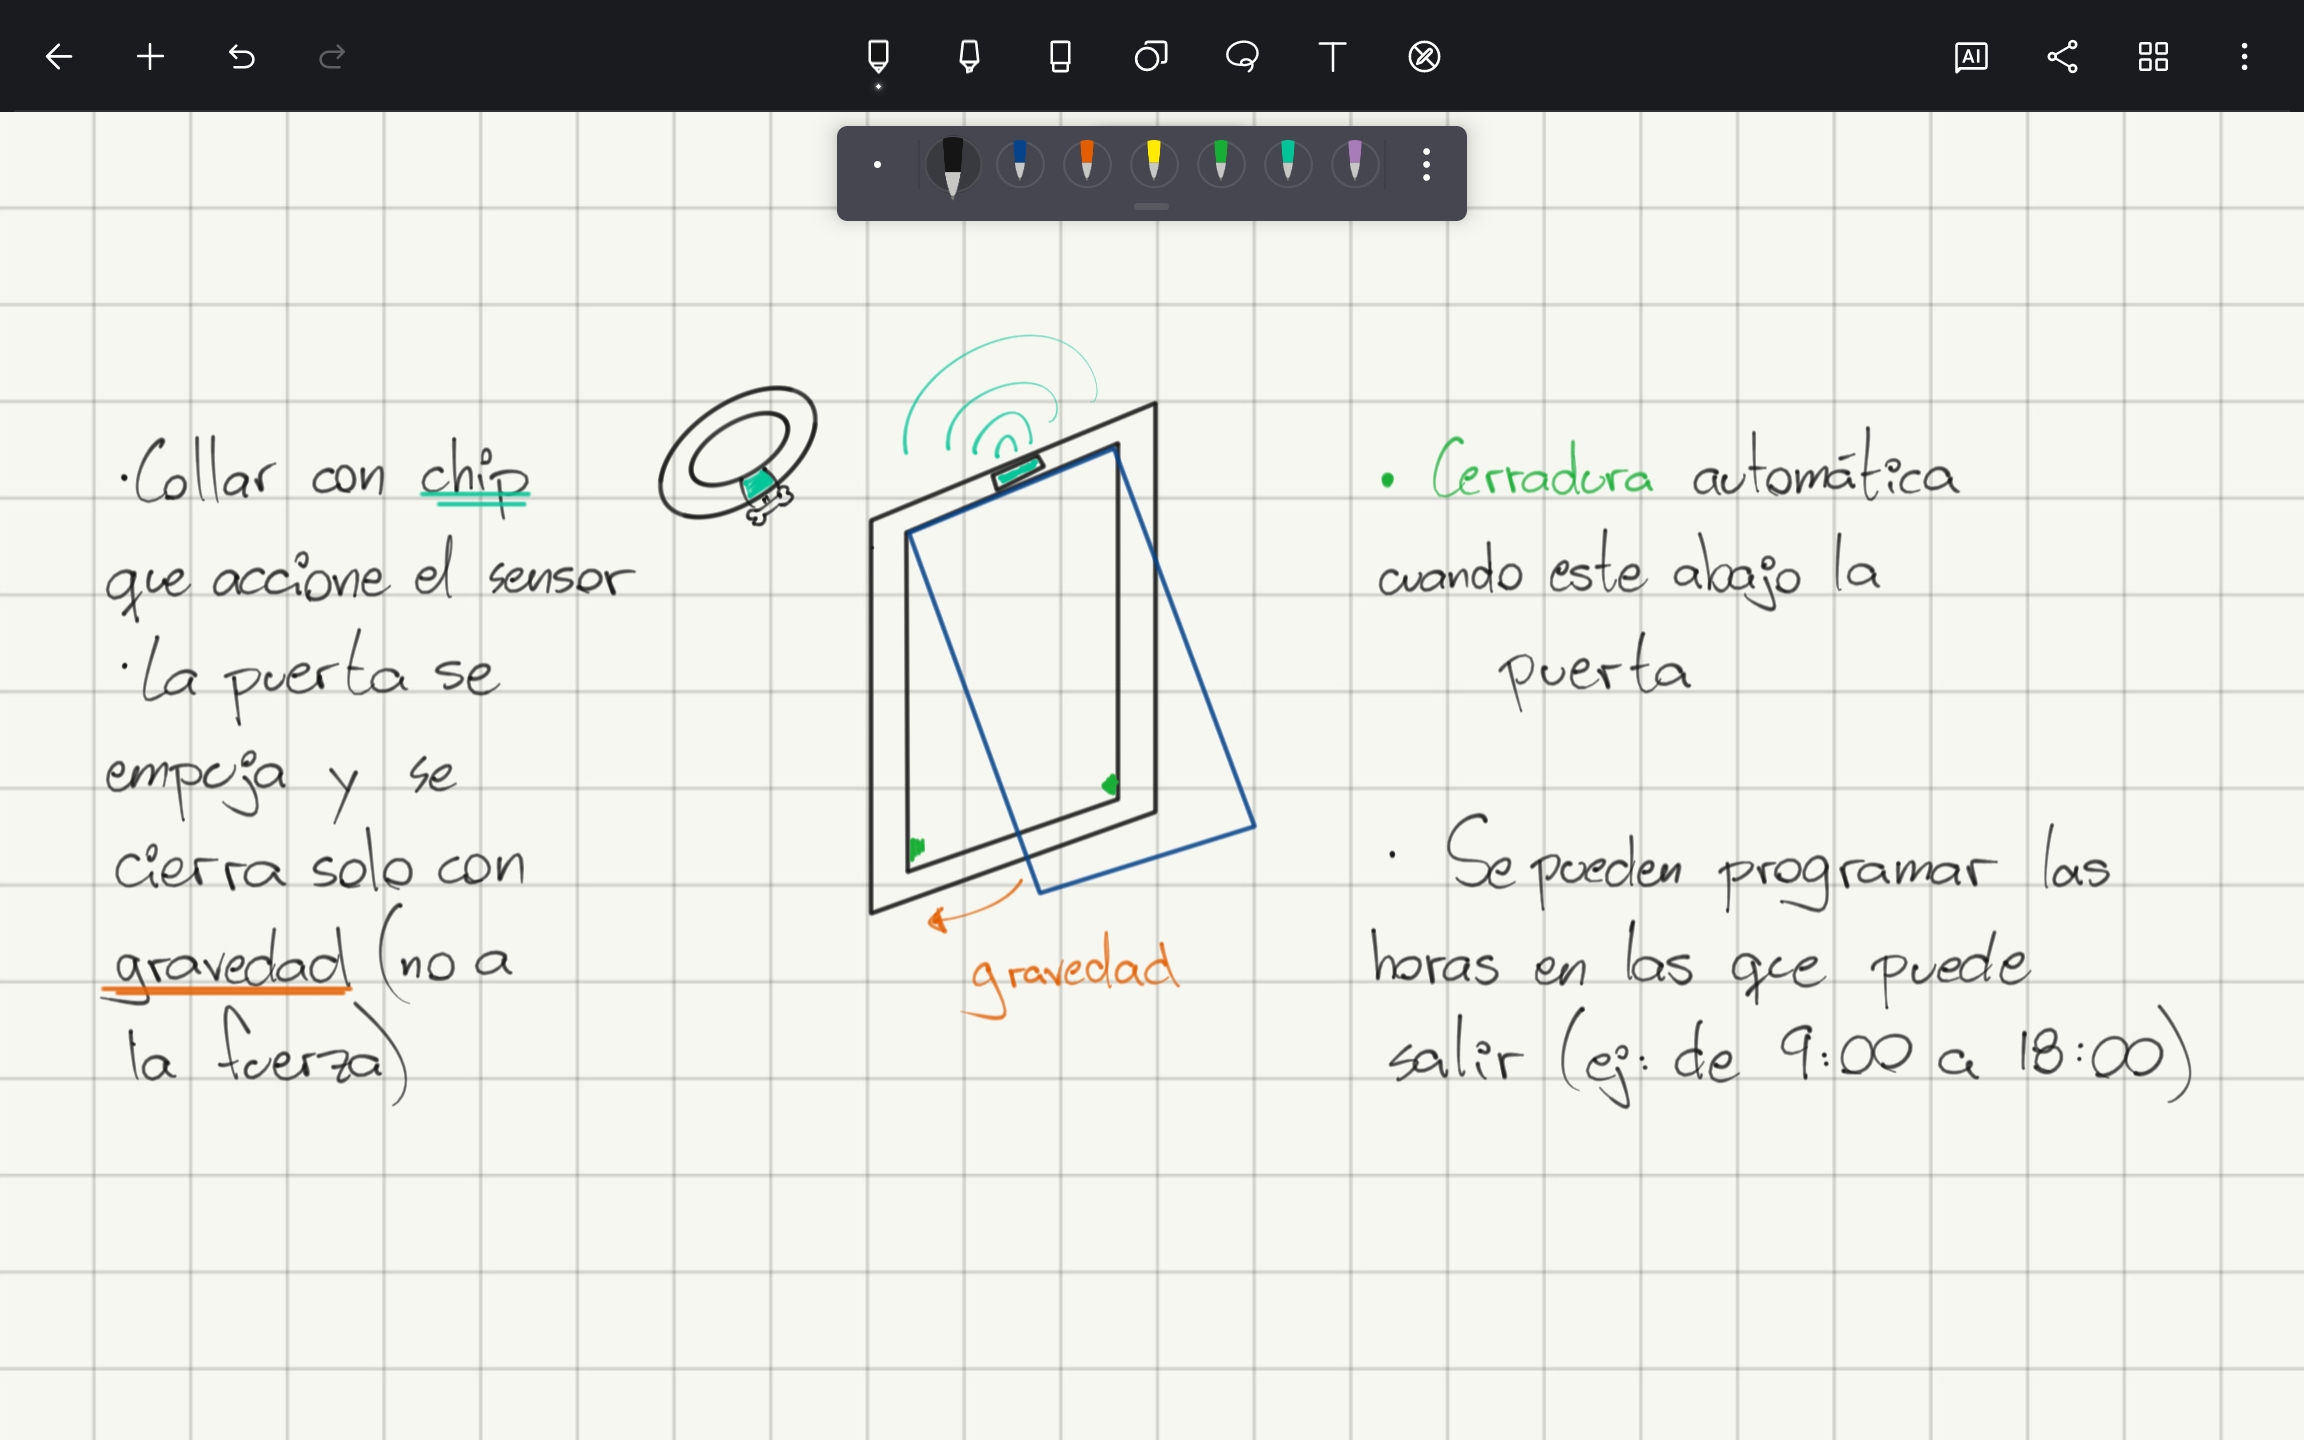 · Collar con chip
que accione el sensor
· La puerta se
empuja y se
cierra solo con
gravedad (no a
la fuerza)
gravedad
· Cerradura automática
cuando este abajo la
puerta
· Se pueden programar las
horas en las que puede
salir (ej: de 9:00 a 18:00)
T
AI